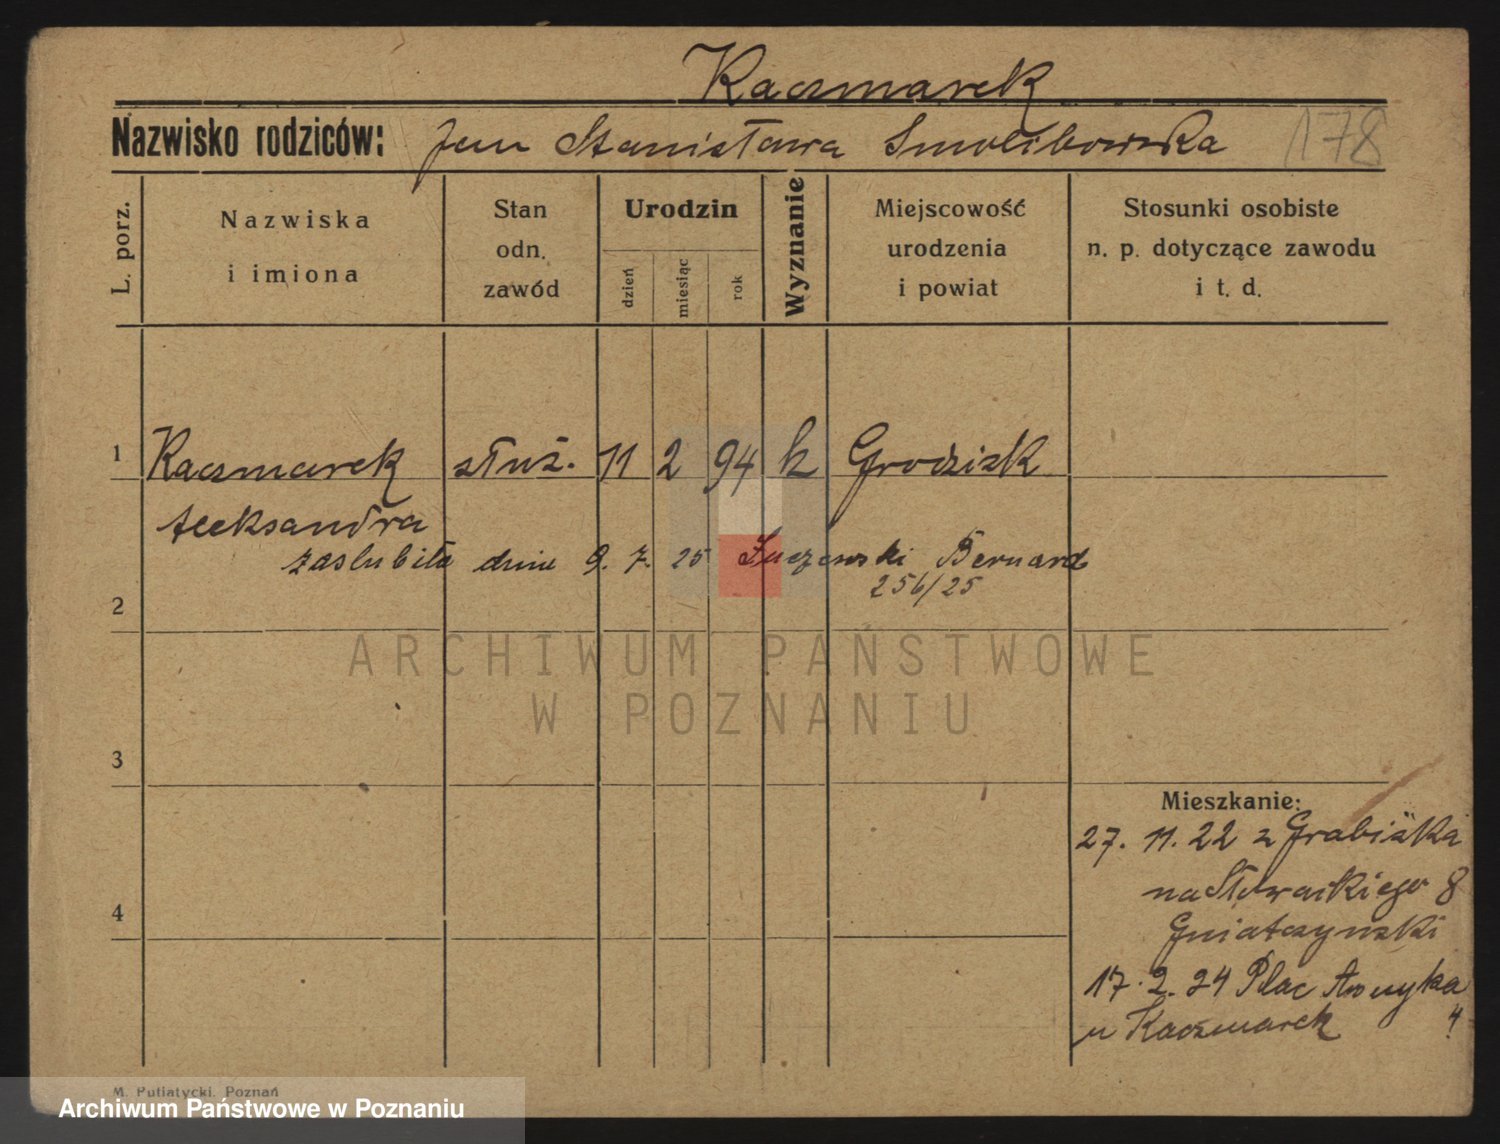 Kaczmarek
Nazwisko rodziców: Jan Stanisława Smolibowska 178
L. porz.
Nazwiska i imiona
Stan odn. zawód
Urodzin
dzień
miesiąc
rok
Wyznanie
Miejscowość urodzenia i powiat
Stosunki osobiste n. p. dotyczące zawodu i t. d.
1 Kaczmarek służ. 11 2 94 k Grodzisk
Aleksandra
zaslubiła dnia 9. 7. 25 Bernard
256/25
2
ARCHIWUM PAŃSTWOWE
W POZNANIU
3
Mieszkanie:
27. 11. 22 z
na Słowackiego 8
Gniatczynski
4
17. 2. 24 Plac
u Kaczmarek 4
M. Putiatycki. Poznań
Archiwum Państwowe w Poznaniu